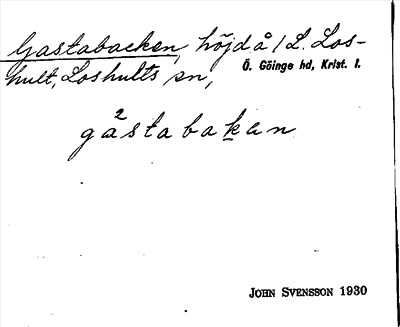 Gastabacken, höjd å / L. Los-
hult, Loshults sn,
Ö. Göinge hd, Krist. l.
2
gastabakan
JOHN SVENSSON 1930